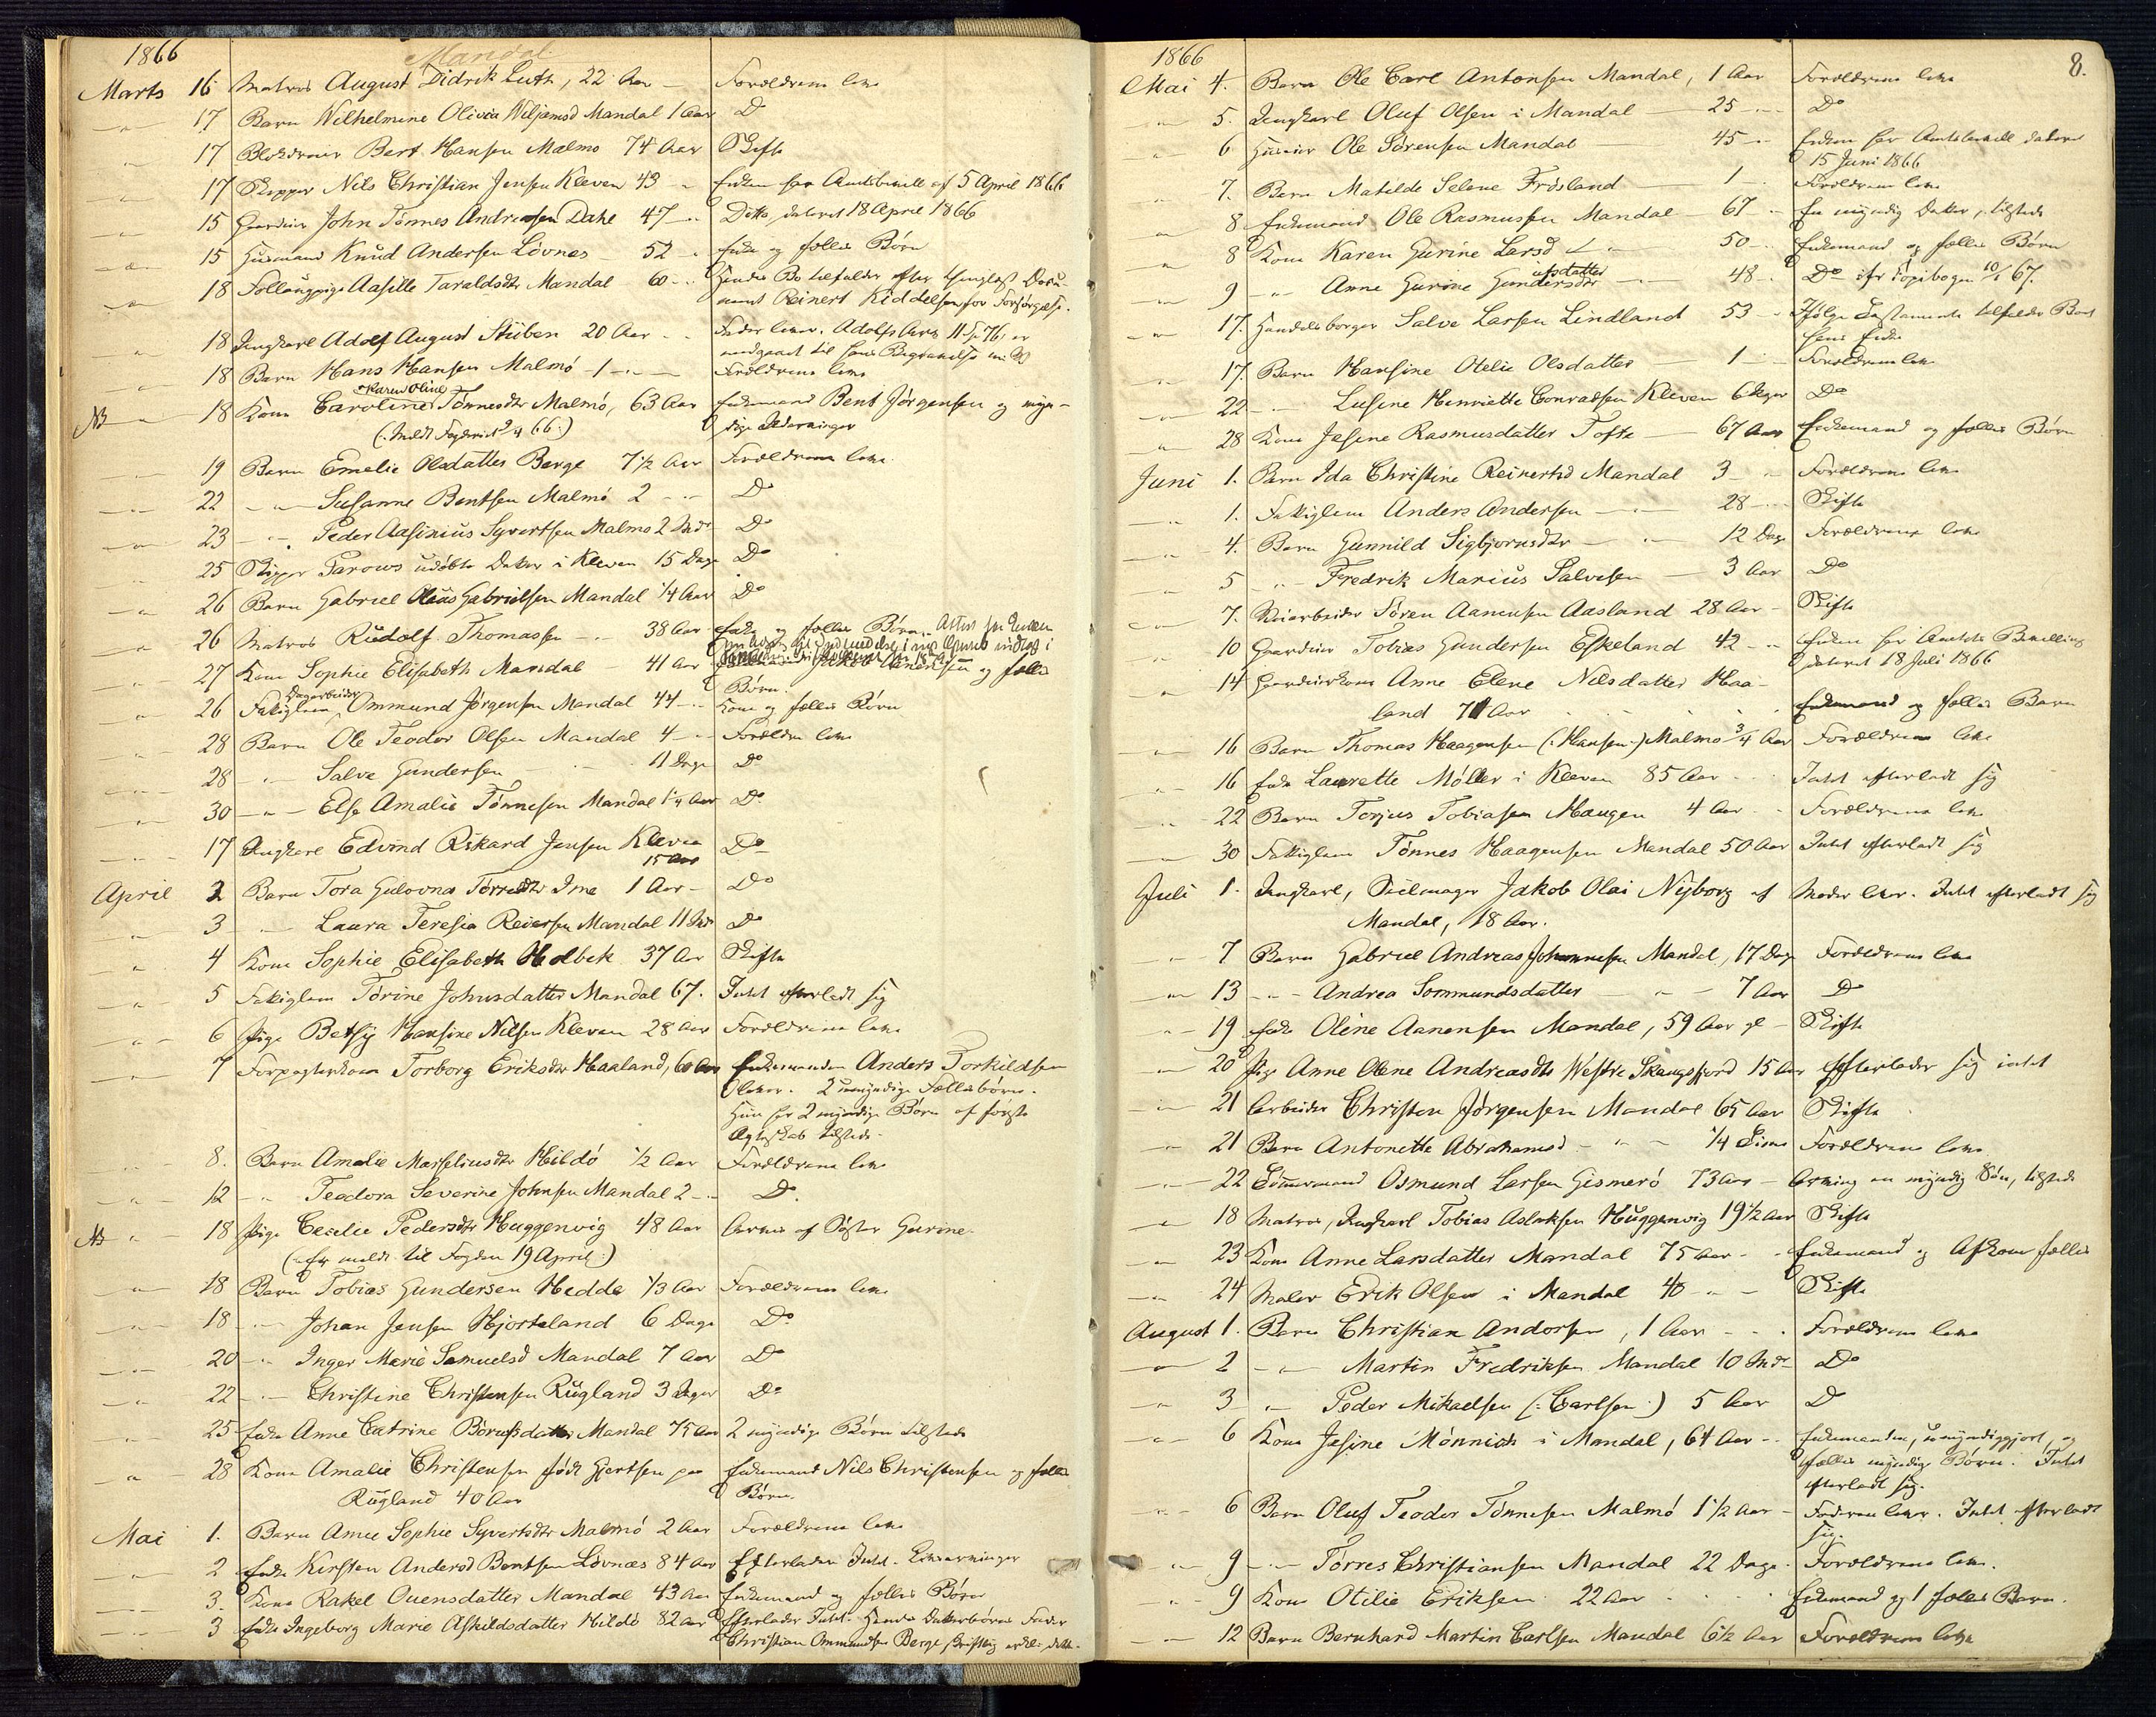 1866 Mandal
Marts 16 Matros August Didrik Luth, 22 Aar — Forældrene leve
17 Barn Wilhelmine Olivia Wiljamsd Mandal 1 Aar Do
17 Blokdreier Bert Hansen Malmø 74 Aar Skifte
17 Skipper Nils Christian Jensen Kleven 43 " Enken har Amtsbevill af 5 April 1866
15 Gaardmand John Tønnes Andreasen Dahl 47 " Ditto, dateret 18 April 1866
15 Husmand Knud Andersen Løvnes 52 " Enke og fælles Børn
18 Aasille Taraldsdtr Mandal 60 " Hendes Bo tilfalder efter thinglæst Docu-
ment Reinert Kiddelsen for Forsørgelse.
18 Ungkarl Adolf August Stüben 20 Aar Fader lever. Adolfs Arv 11 Sp 76 er
medgaaet til hans Begravelse
18 Barn Hans Hansen Malmø 1 " Forældrene leve
Karen Oline
NB 18 Kone Caroline Tønnesdtr Malmø, 63 Aar Enkemand Bent Jørgensen og myn-
(Meldt Fogderiet 9/4 66.) dige Udarvinger
19 Barn Emelie Olsdatter Berge 7 1/2 Aar Forældrene leve
22 " Susanne Bentsen Malmø 2 " Do
23 " Peder Aasinius Syvertsen Malmø 2 Mdr Do
25 Skipper Parows udøbte Datter i Kleven 15 Dage Do
26 Barn Gabriel Olaus Gabrielsen Mandal 1/4 Aar Do
26 Matros Rudolf Thomassen " 38 Aar Enke og fælles Børn. Attest
27 Kone Sophie Elisabeth Mandal 41 Aar og fælles
Børn.
Dagarbeider
26 Fattiglem Ommund Jørgensen Mandal 44 " Kone og fælles Børn
28 Barn Ole Teodor Olsen Mandal 4 " Forældre leve
28 " Salve Gundersen " 11 Dage Do
30 " Else Amalie Tønnesen Mandal 1 1/4 Aar Do
17 Ungkarl Edvind Rikard Jensen Kleven Do
15 Aar
April 2 Barn Tora Gulovna Torresdtr Ime 1 Aar — Do
3 " Laura Teresia Reiersen Mandal 11 Mdr Do
4 Kone Sophie Elisabeth Holbek 37 Aar Skifte
5 Fattiglem Tørine Johnsdatter Mandal 67. Intet efterladt sig
6 Pige Betsy Hansine Nilsen Kleven 28 Aar Forældrene leve
7 Forpagterkone Torborg Eriksdtr Haaland, 60 Aar Enkemanden Anders Torkildsen
lever. 2 umyndige Fællesbørn.
Hun har 2 myndige Børn af første
Ægteskab tilstede.
8. Barn Amalie Marseliusdtr Hildø 1/2 Aar Forældrene leve
12 " Teodora Severine Johnsen Mandal 2 " Do.
NB 18 Pige Cecilie Pedersdtr Huggenvig 48 Aar Arves af Søster Gurine.
(Er meldt til Fogden 19 April.)
18 Barn Tobias Gundersen Hedda 1/3 Aar Forældrene leve
18 " Johan Jensen Hjorteland 6 Dage Do
20 " Inger Marie Samuelsd Mandal 7 Aar Do
22 " Christine Christensen Rugland 3 Dage Do
25 Enke Anne Catrine Børufsdatter Mandal 75 Aar 2 myndige Børn tilstede
28 Kone Amalie Christensen født Gjertsen paa Enkemand Nils Christensen og fælles
Rugland 40 Aar Børn.
Mai 1. Barn Anne Sophie Syvertsdtr Malmø 2 Aar Forældrene leve
2 Enke Kirsten Andersd Bentsen Løvnæs 84 Aar Efterlader Intet. Livsarvinger
3. Kone Rakel Ouensdatter Mandal 43 Aar Enkemand og fælles Børn
3 Enke Ingeborg Marie Askildsdatter Hildø 82 Aar Efterlader Intet. Hendes Datterbørns Fader
Christian Ommundsen Berge
1866 8.
Mai 4. Barn Ole Carl Antonsen Mandal, 1 Aar Forældrene leve
5. Ungkarl Oluf Olsen i Mandal — 25 " Do
6 Huseier Ole Sørensen Mandal 45 " Enken har Amtsbevill dateret
15 Juni 1866
7. Barn Matilde Selene Frøsland 1 " Forældrene leve
8 Enkemand Ole Rasmussen Mandal 67 " En myndig Datter, tilstede
8 Kone Karen Gurine Larsd " 50 " Enkemand og fælles Børn
9 " Anne Gurine Gundersdtr " 48 " Do cfr Kopibogen 10/1 67.
17. Handelsborger Salve Larsen Lindland 53 " Ifølge Testamente tilfalder Boet
hans Enke
17. Barn Hansine Otelie Olsdatter 1 " Forældrene leve
22 " Lusine Henriette Conradsen Kleven 6 Uger Do
28 Kone Jasine Rasmusdatter Tofte 67 Aar Enkemand og fælles Børn
Juni 1. Barn Ida Christine Reinertsd Mandal 3 " Forældrene leve
1. Fattiglem Anders Andersen " 28 " Skifte
4. Barn Gunnild Sigbjørnsdtr " 12 Dage Forældrene leve
5 " Fredrik Marius Salvesen — 3 Aar Do
7. Veiarbeider Søren Aanensen Aasland 28 Aar — Skifte
10 Gaardmand Tobias Gundersen Eskeland 42 " Enken har Amtets Bevilling
dateret 18 Juli 1866
14 Gaardmandskone Anne Elene Nilsdatter Haa-
land 71 Aar Enkemand og fælles Børn
16 Barn Thomas Haagensen (Hansen) Malmø 3/4 Aar Forældrene leve
16 Enke Laurette Møller i Kleven 85 Aar Intet efterladt sig
22 Barn Torjus Tobiasen Haugen 4 Aar Forældrene leve
30 Fattiglem Tønnes Haagensen Mandal 50 Aar Intet efterladt sig
Juli 1. Ungkarl, Seilmager Jakob Olai Nyborg af Moder lever. Intet efterladt sig
Mandal, 18 Aar.
7 Barn Gabriel Andreas Johannesen Mandal, 17 Dage Forældrene leve
13 " Andrea Sommundsdatter " 7 Aar Do
19 Enke Oline Aanensen Mandal, 59 Aar gl — Skifte
20 Pige Anne Oline Andreasdtr Westre Skaugsfjord 15 Aar Efterlader sig intet
21 Arbeider Christen Jørgensen Mandal 65 Aar Skifte
21 Barn Antonette Abrahamsd " 1/4 Time Forældrene leve
22 Tømmermand Osmund Larsen Gismerø 73 Aar — Arving en myndig Søn, tilstede
18 Matros, Ungkarl Tobias Aslaksen Huggenvig 19 1/2 Aar Skifte
23 Kone Anne Larsdatter Mandal 75 Aar " Enkemand og Afkom fælles
24 Maler Erik Olsen i Mandal 40 " Skifte
August 1. Barn Christian Andorsen, 1 Aar Forældrene leve
2 " Martin Fredriksen Mandal 10 Mdr Do
3 " Peder Mikaelsen (Carlsen) 5 Aar Do
6 Kone Jasine Mønnich i Mandal, 64 Aar Enkemanden, umyndiggjort, og
fælles myndige Børn. Intet
efterladt sig.
6 Barn Oluf Teodor Tønnesen Malmø 1 1/2 Aar — Faderen lever. Intet efterladt
sig.
9 " Tørres Christiansen Mandal 22 Dage. Forældrene leve.
9 Kone Otilie Eriksen 22 Aar Enkemand og 1 fælles Barn.
12 Barn Bernhard Martin Carlsen Mandal 6 1/2 Aar Forældrene leve